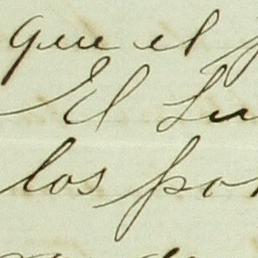 que el
El Lu
los por